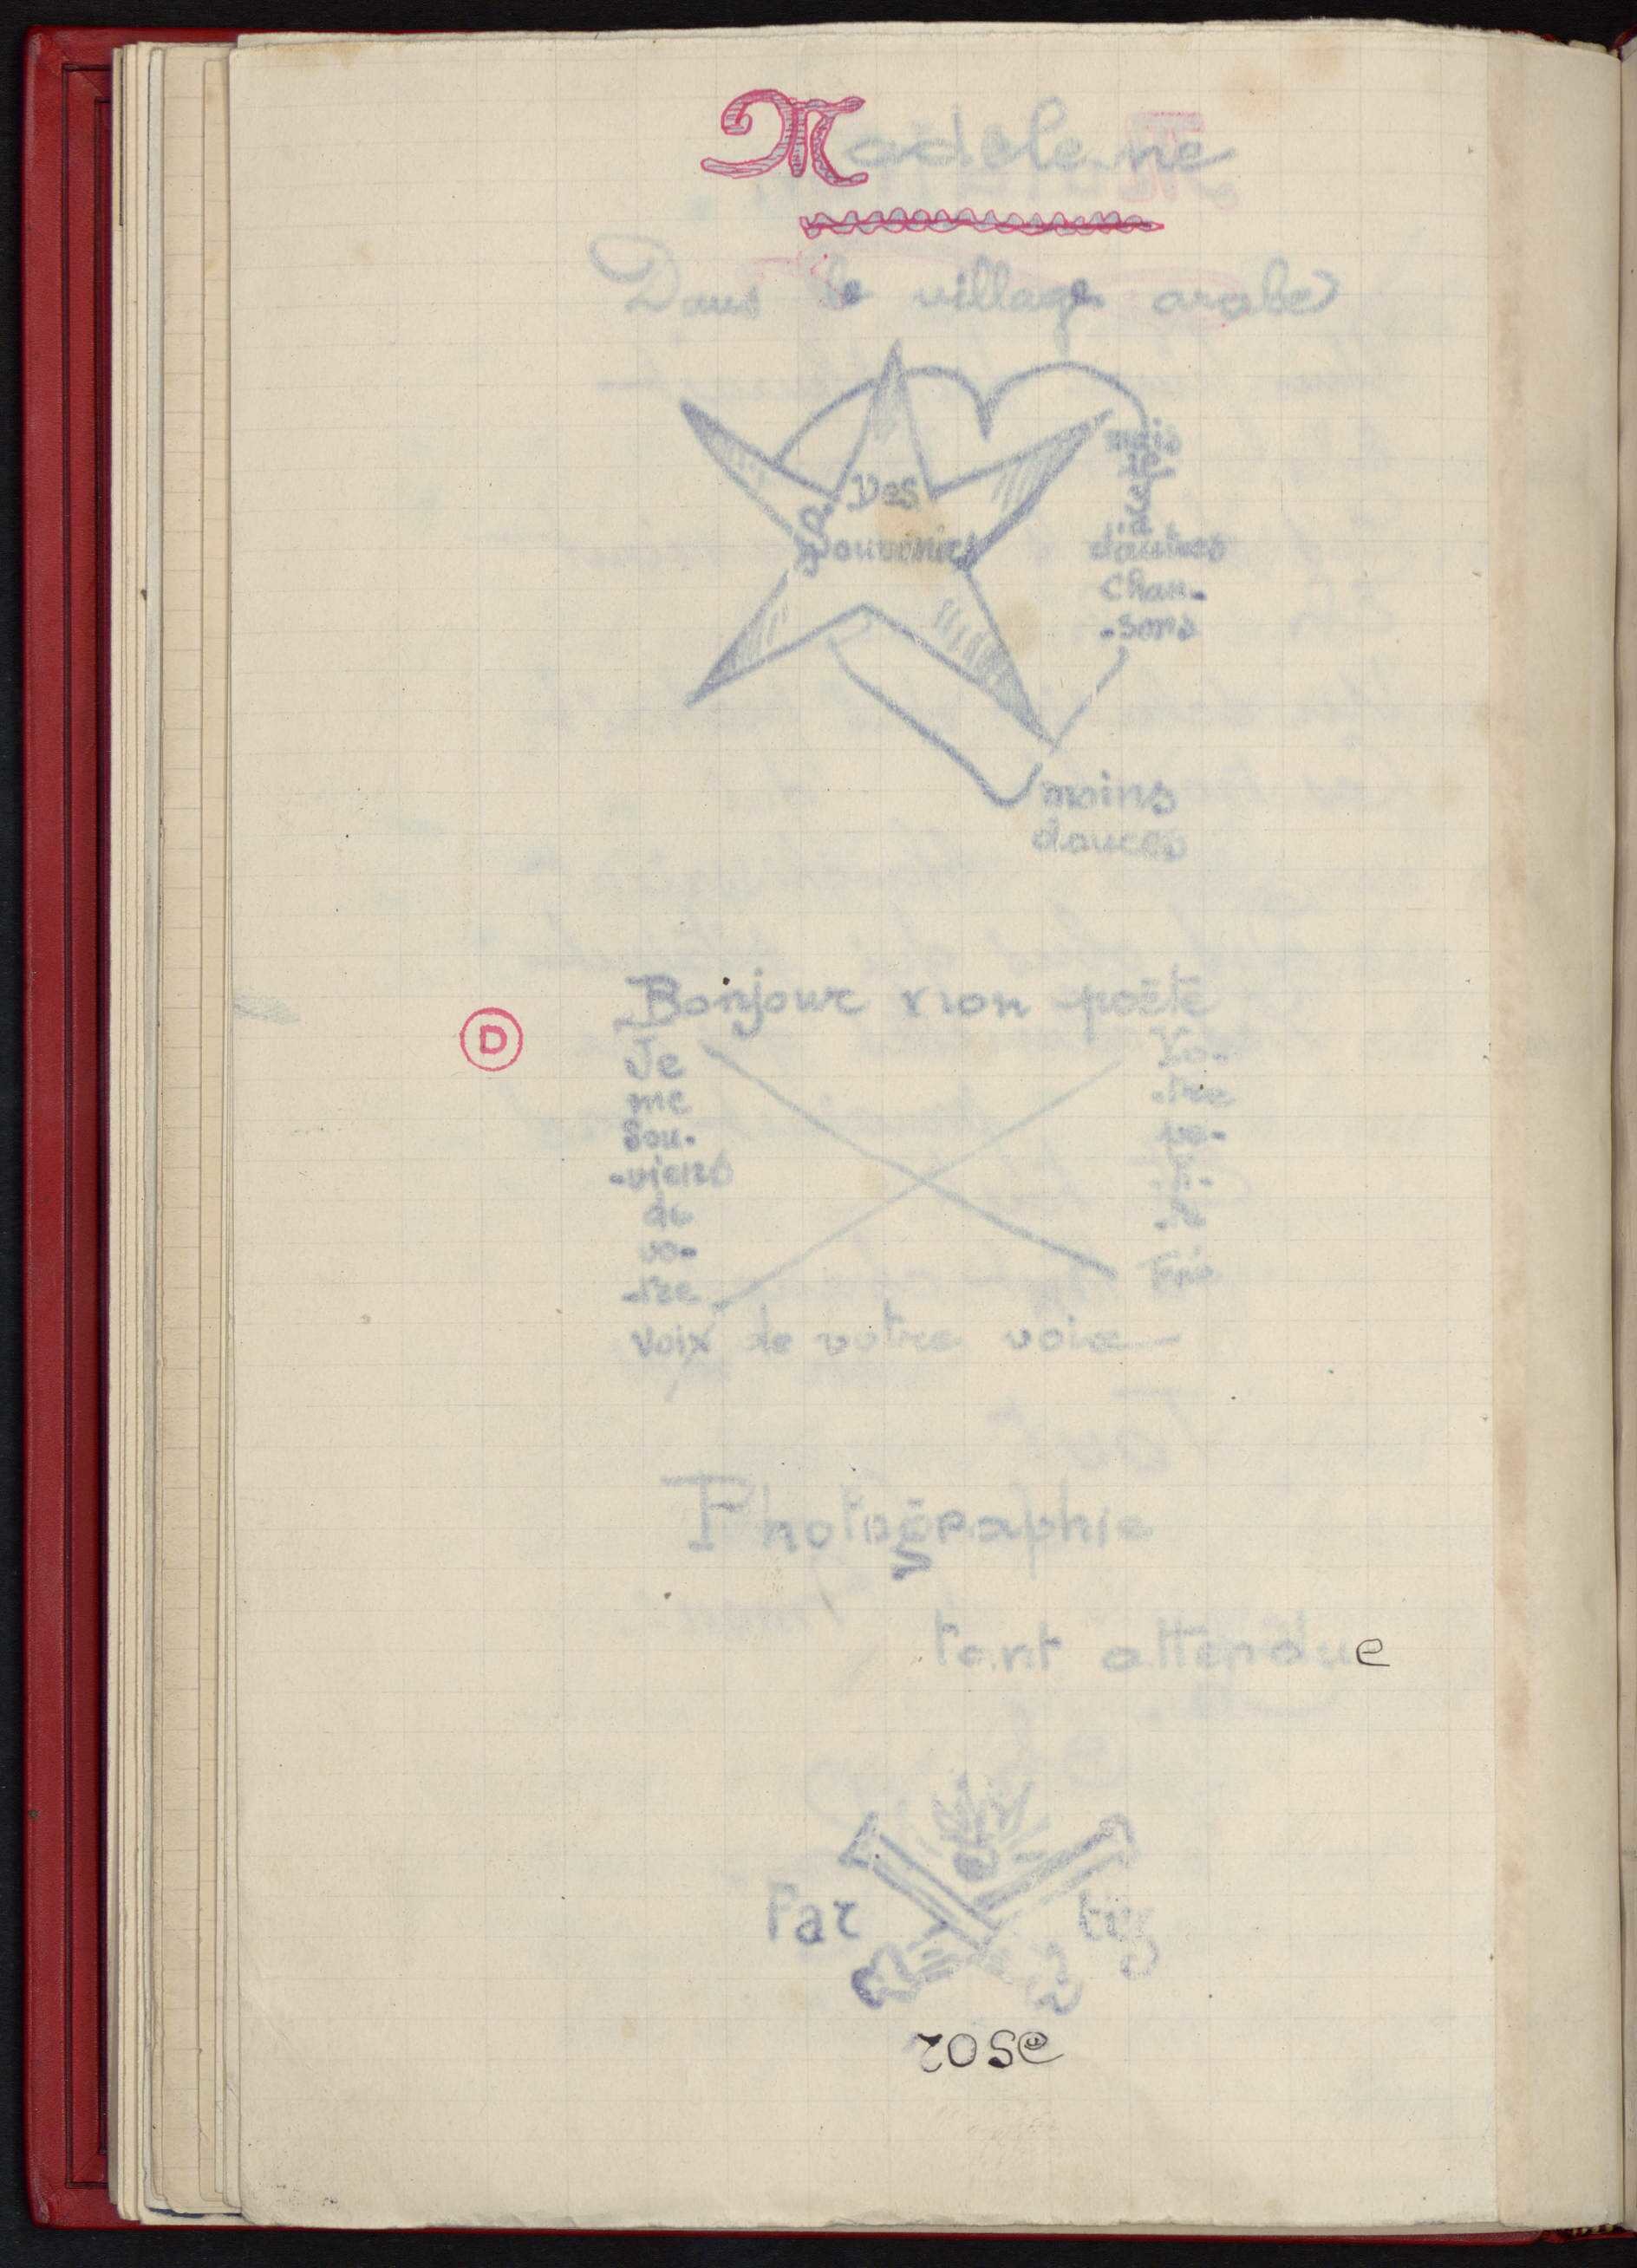 Madeleine
Dans le village arabe
Des
Souvenirs
mais
d'autres
chan-
-sons
moins
douces
Bonjour mon poète
D
Je
me
sou-
-viens
de
vo-
-tre
voix de votre voix
Vo-
-tre
pe-
-ti-
-te
Fée
Photographie
tant attendue
Far
tig
rose